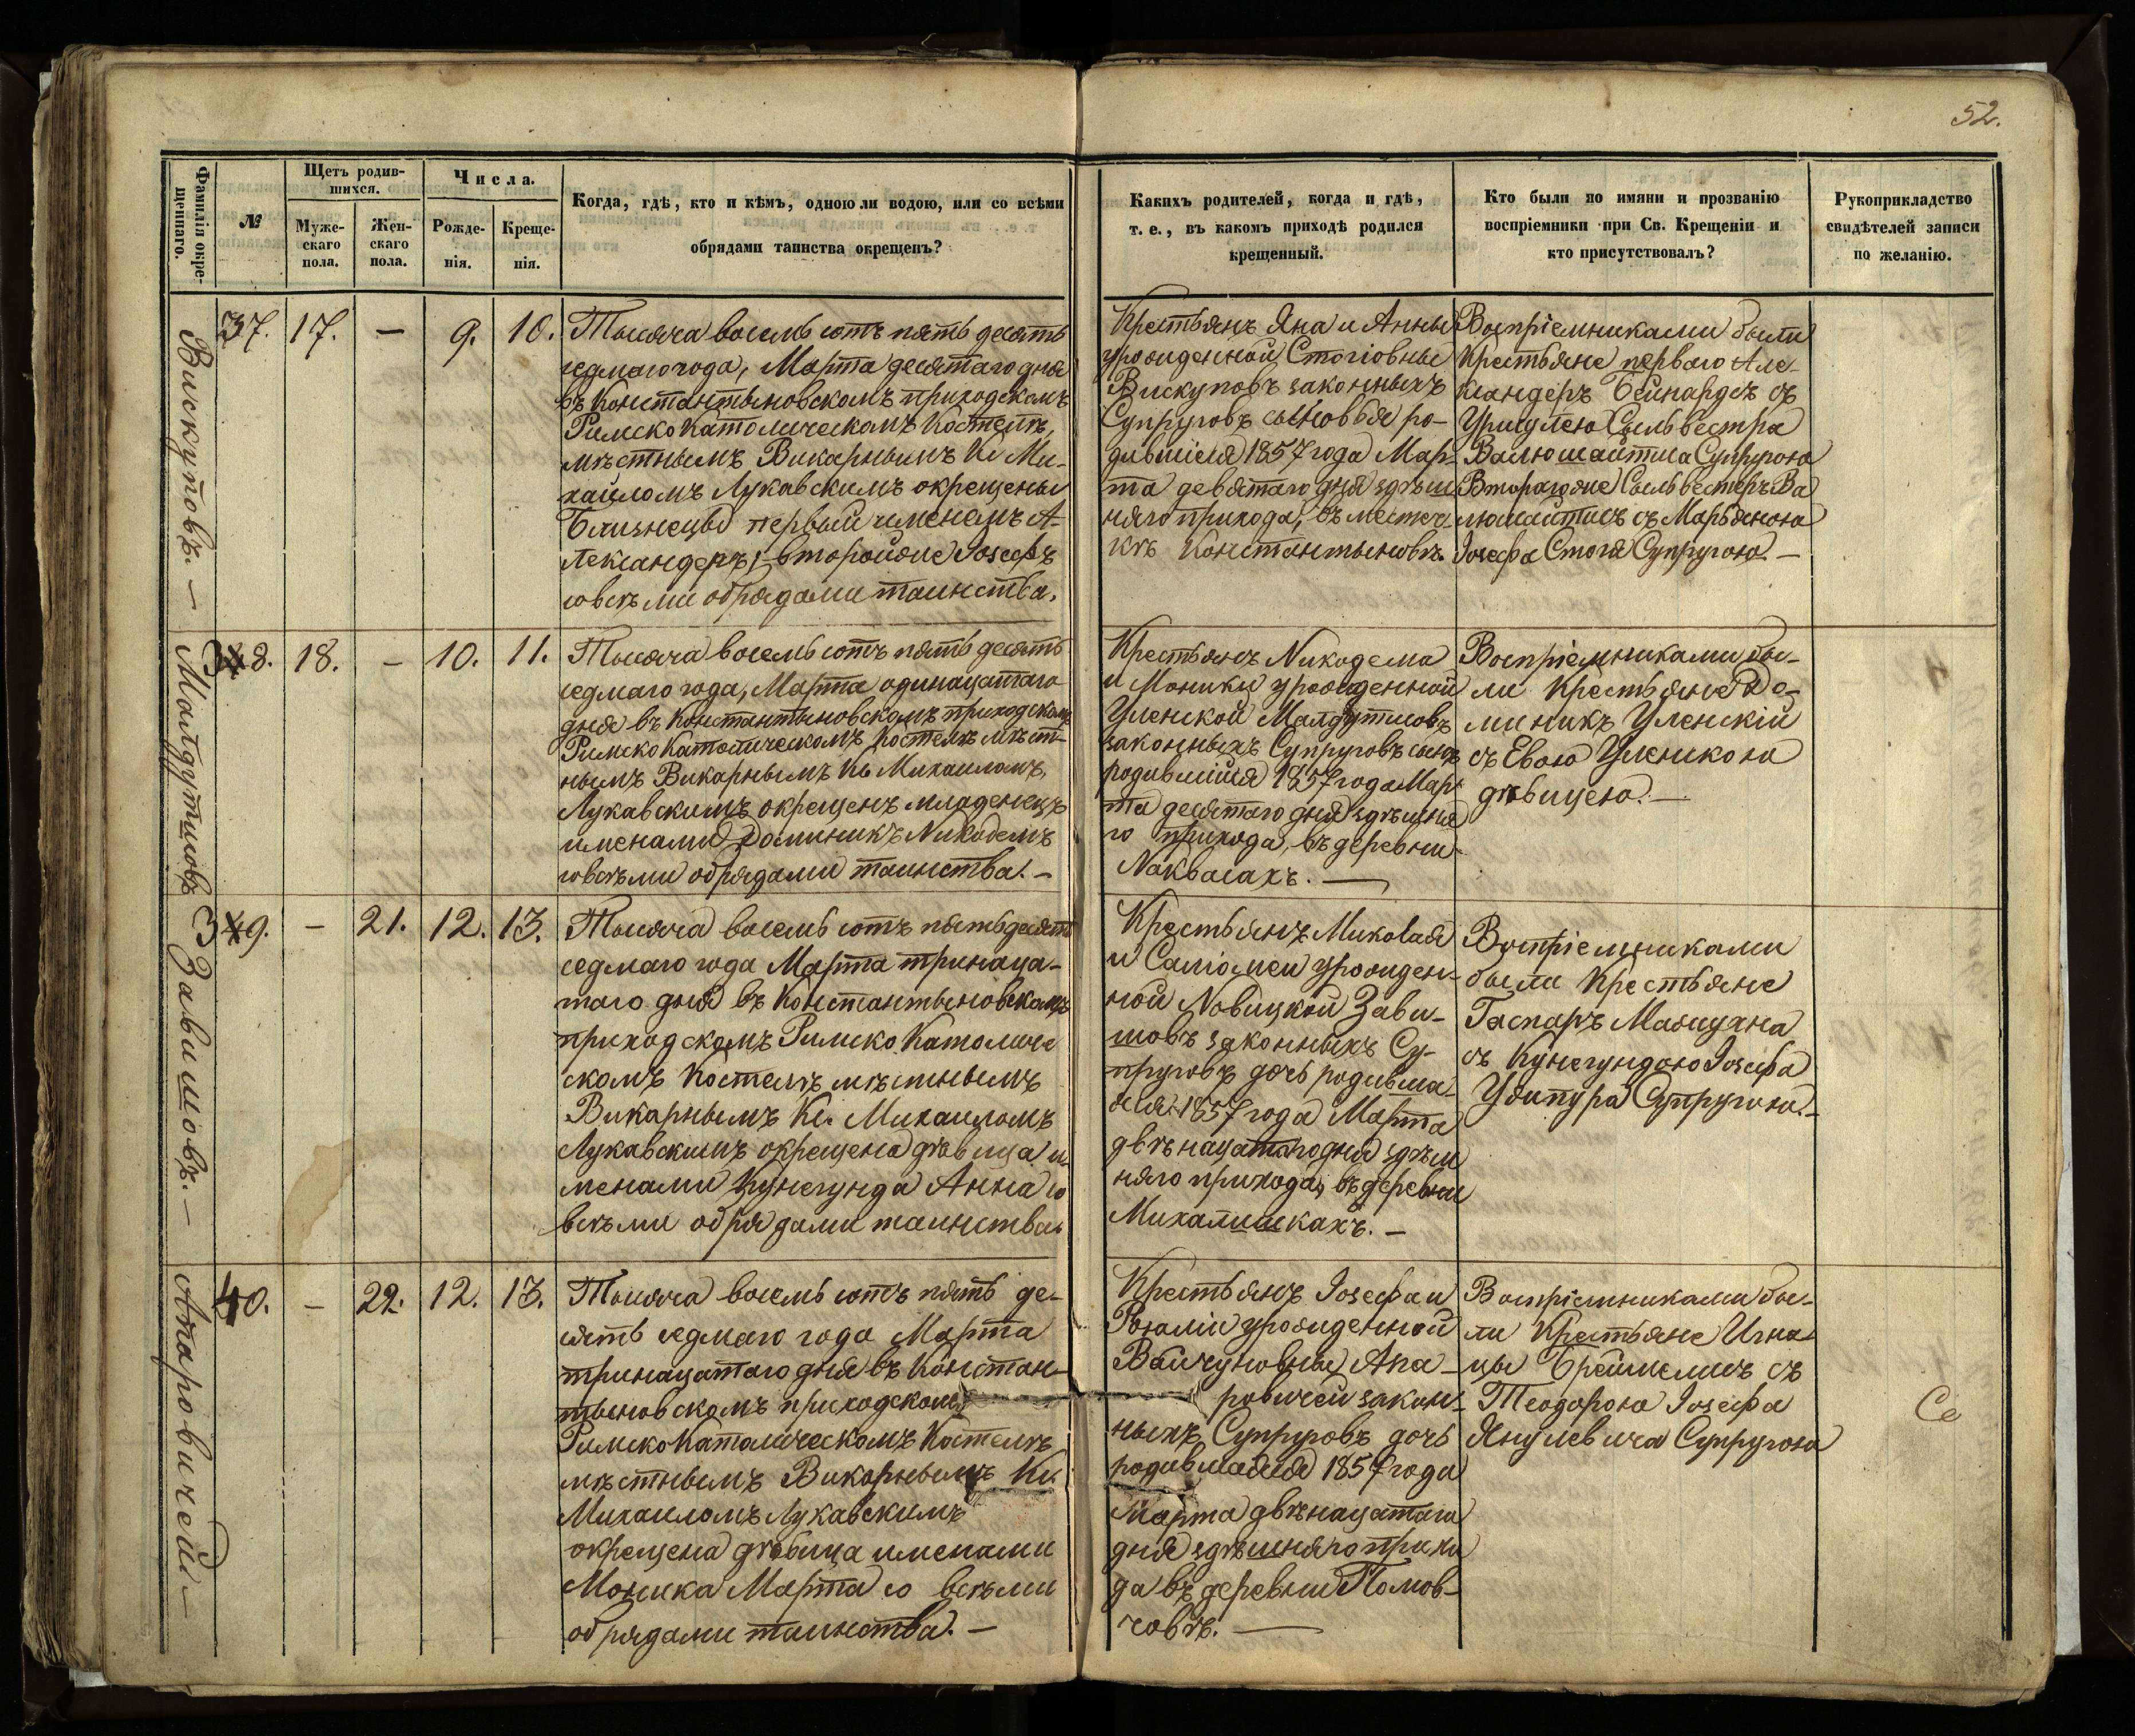 52.
Фамилія окре-
щеннаго.
№
Щетъ родив-
шихся.
Муже-
скаго
пола.
Жен-
скаго
пола.
Числа.
Рожде-
нія.
Креще-
нія.
Когда, гдѣ, кто и кѣмъ, одною ли водою, или со всѣми
обрядами таинства окрещенъ?
Какихъ родителей, когда и гдѣ,
т. е., въ какомъ приходѣ родился
крещенный.
Кто были по имяни и прозванію
воспріемники при Св. Крещеніи и
кто присутствовалъ?
Рукоприкладство
свидѣтелей записи
по желанію.
Вискуповъ. —
37. 17. — 9. 10.
Тысяча восемь сотъ пять десятъ
седмаго года, Марта десятаго дня
въ Константыновскомъ приходскомъ
Римско Католическомъ Костелѣ,
мѣстнымъ Викарнымъ Кс Ми-
хаиломъ Лукавскимъ окрещены
Близнецы первый именемъ А-
лександеръ, вторый же Іозефъ
со всѣми обрядами таинства.
Крестьянъ Яна и Анны
урожденной Стогіовны
Вискуповъ законныхъ
Супруговъ сыновья ро-
дившіеся 1857 года Мар-
та девятаго дня здѣш
няго прихода, въ местеч-
кѣ Константыновѣ.
Воспріемниками были
Крестьяне перваго Але-
ксандеръ Бейнардъ съ
Уршулею Сыльвестра
Валюшайтиса Супругою
Втораго же Сыльвестеръ Ва
люшайтисъ съ Марьянною
Іозефа Стогя Супругою. —
Малдутисовъ
38. 18. — 10. 11.
Тысяча восемь сотъ пять десятъ
седмаго года, Марта одинацатаго
дня въ Константыновскомъ приходскомъ
Римско Католическомъ Костелѣ мѣст-
нымъ Викарнымъ Кс Михаиломъ
Лукавскимъ окрещенъ младенецъ
именами Доминикъ Никодемъ
со всѣми обрядами таинства. —
Крестьянъ Никодема
и Моники урожденной
Уленской Малдутисовъ
законныхъ Супруговъ сынъ
родившійся 1857 года Мар
та десятаго дня здѣшня
го прихода, въ деревни
Наквасахъ. —
Воспріемниками бы-
ли Крестьяне До-
миникъ Уленскій
съ Евою Уленскою
дѣвицею. —
Завишовъ. —
39. — 21. 12. 13.
Тысяча восемь сотъ пять десятъ
седмаго года Марта тринаца-
таго дня въ Константыновскомъ
приходскомъ Римско Католиче
скомъ Костелѣ мѣстнымъ
Викарнымъ Кс. Михаиломъ
Лукавскимъ окрещена дѣвица и-
менами Кунегунда Анна со
всѣми обрядами таинства.
Крестьянъ Миколая
и Саломеи урожден-
ной Новицкой Зави-
шовъ законныхъ Су-
пруговъ дочь родивша-
яся 1857 года Марта
двѣнацатаго дня здѣш
няго прихода, въ деревни
Михалишкахъ. —
Воспріемниками
были Крестьяне
Гаспаръ
съ Кунегундою Іозефа
Супругою. —
Апаровичей —
40. — 22. 12. 13.
Тысяча восемь сотъ пять де-
сятъ седмаго года Марта
тринацатаго дня въ Констан-
тыновскомъ приходскомъ
Римско Католическомъ Костелѣ
мѣстнымъ Викарнымъ Кс.
Михаиломъ Лукавскимъ
окрещена дѣвица именами
Моника Марта со всѣми
обрядами таинства. —
Крестьянъ Іозефа и
Розаліи урожденной
Вайчуновны Апа-
ровичей закон-
ныхъ Супруговъ дочь
родившаяся 1857 года
Марта двѣнацатаго
дня здѣшняго прихо
да въ деревни Помов-
човѣ. —
Воспріемниками бы-
ли Крестьяне Игна-
цы съ
Теодорою Іозефа
Янулевича Супругою
Се